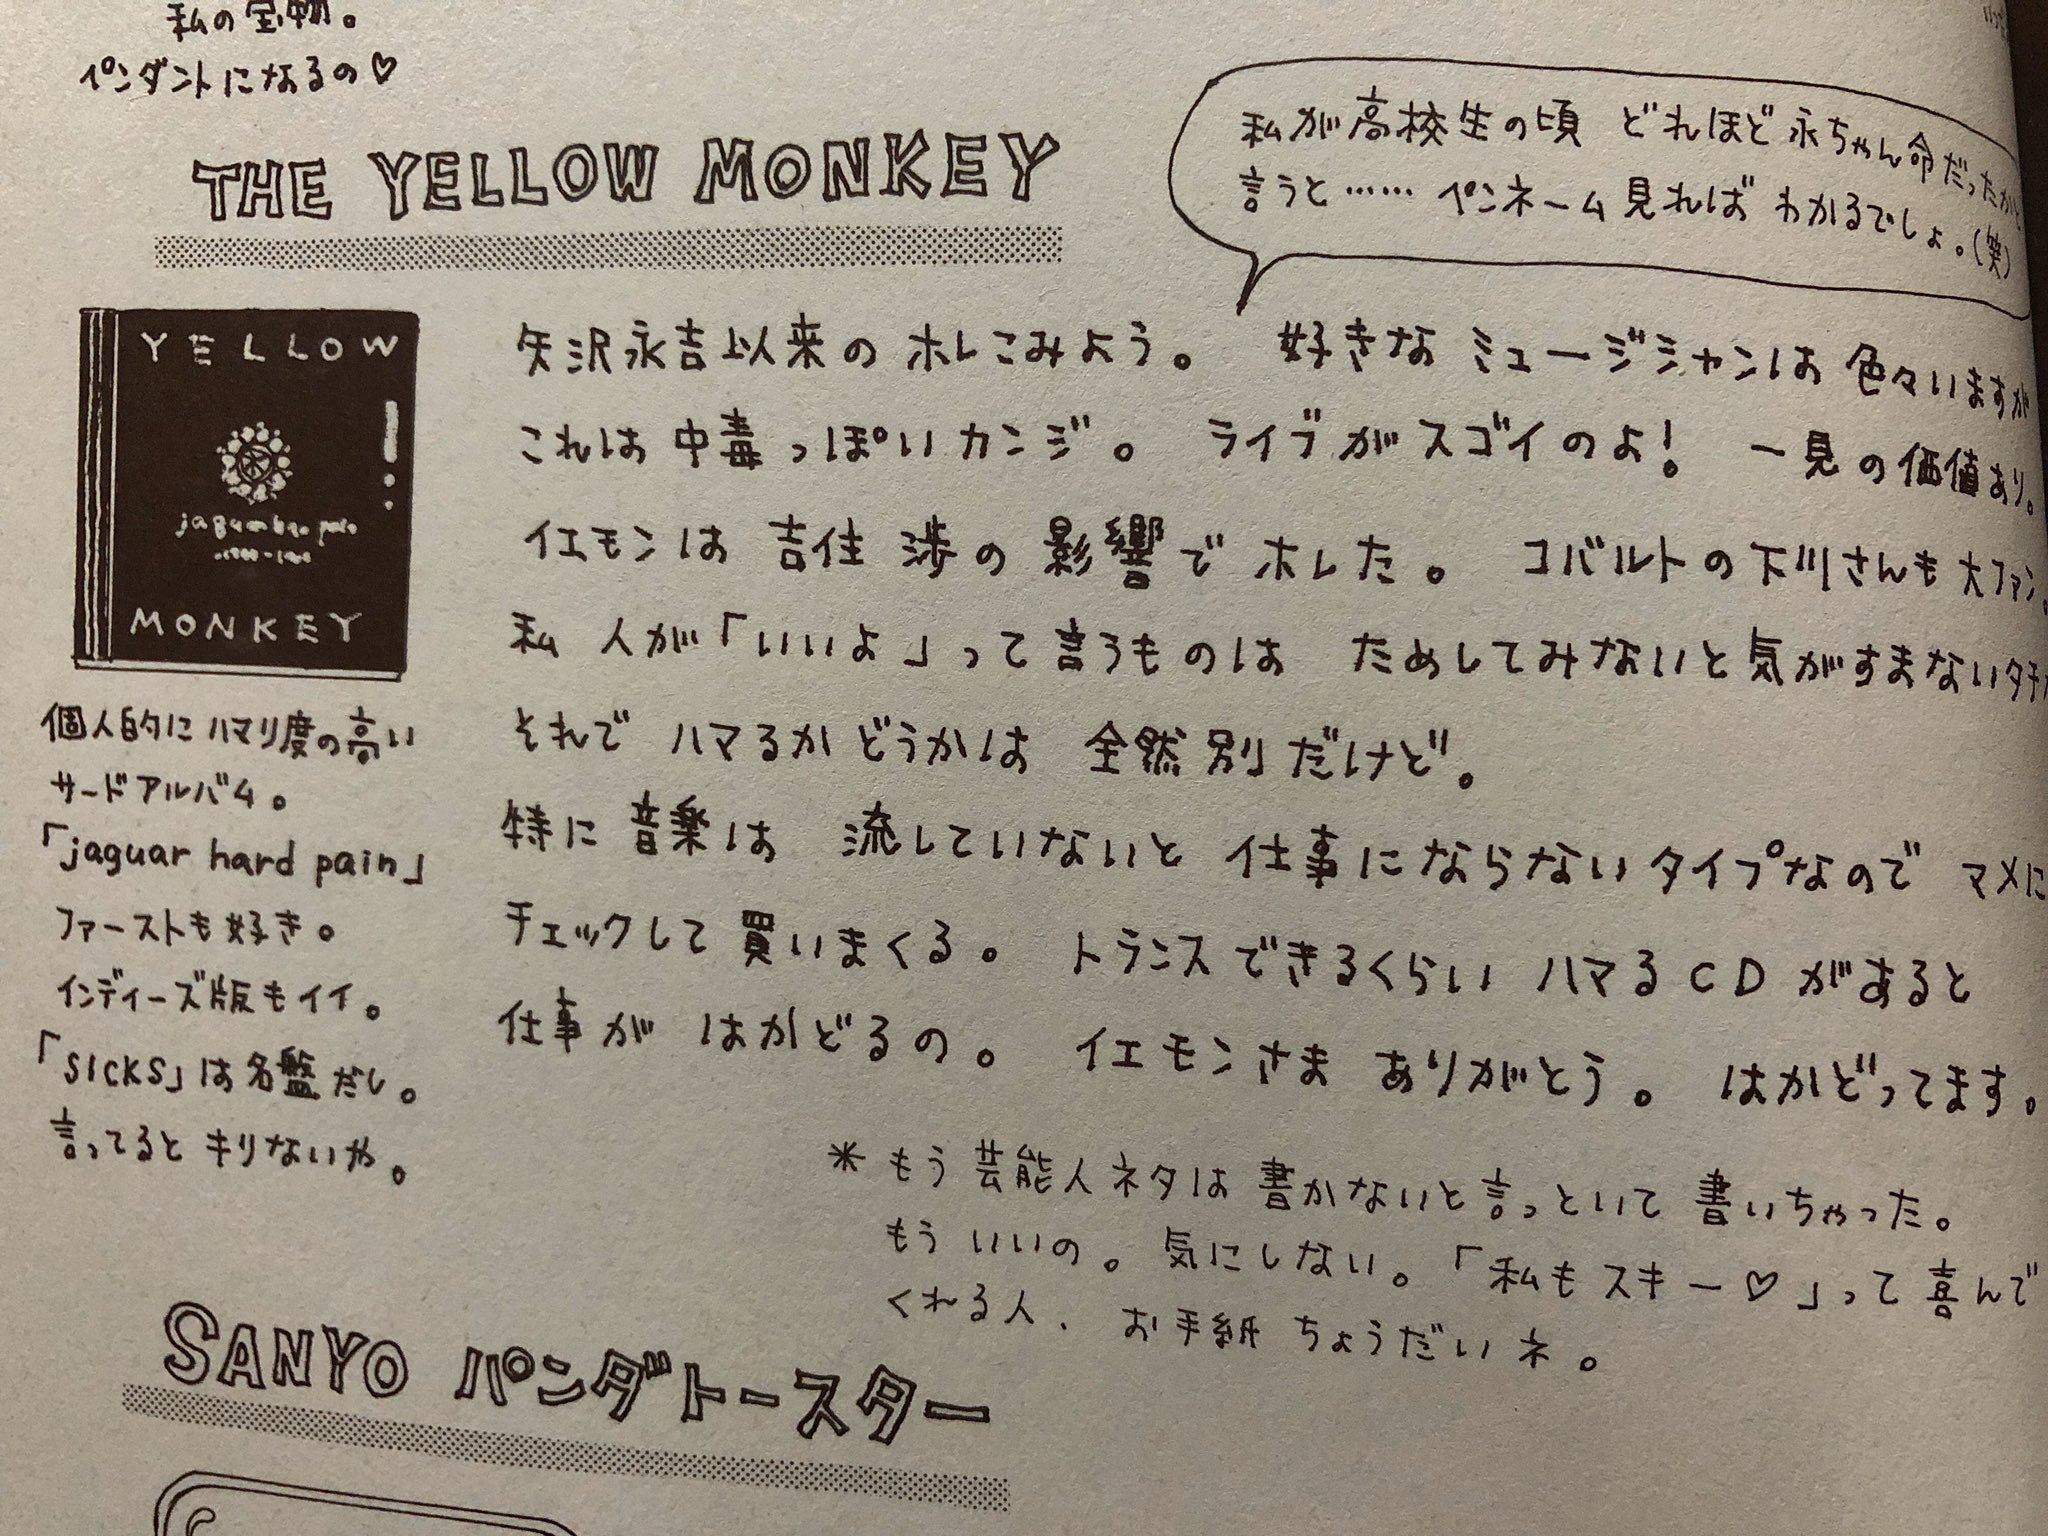 私の宝物。
ペンダントになるの♡
THE YELLOW MONKEY
私が高校生の頃 どれほど永ちゃん命だったかと
言うと…… ペンネーム見ればわかるでしょ。(笑)
YELLOW
jaguar hard pain
MONKEY
矢沢永吉以来のホレこみよう。 好きなミュージシャンは色々いますが
これは中毒っぽいカンジ。 ライブがスゴイのよ! 一見の価値あり。
イエモンは吉住渉の影響でホレた。 コバルトの下川さんも大ファン。
私 人が「いいよ」って言うものは ためしてみないと気がすまないタチ
それでハマるかどうかは 全然別だけど。
特に音楽は 流していないと仕事にならないタイプなので マメに
チェックして買いまくる。 トランスできるくらいハマるCDがあると
仕事が はかどるの。 イエモンさま ありがとう。 はかどってます。
個人的にハマリ度の高い
サードアルバム。
「jaguar hard pain」
ファーストも好き。
インディーズ版もイイ。
「SICKS」は名盤だし。
言ってるとキリないや。
*もう芸能人ネタは書かないと言っといて書いちゃった。
もういいの。気にしない。「私もスキー♡」って喜んで
くれる人、お手紙ちょうだいネ。
SANYO パンダトースター